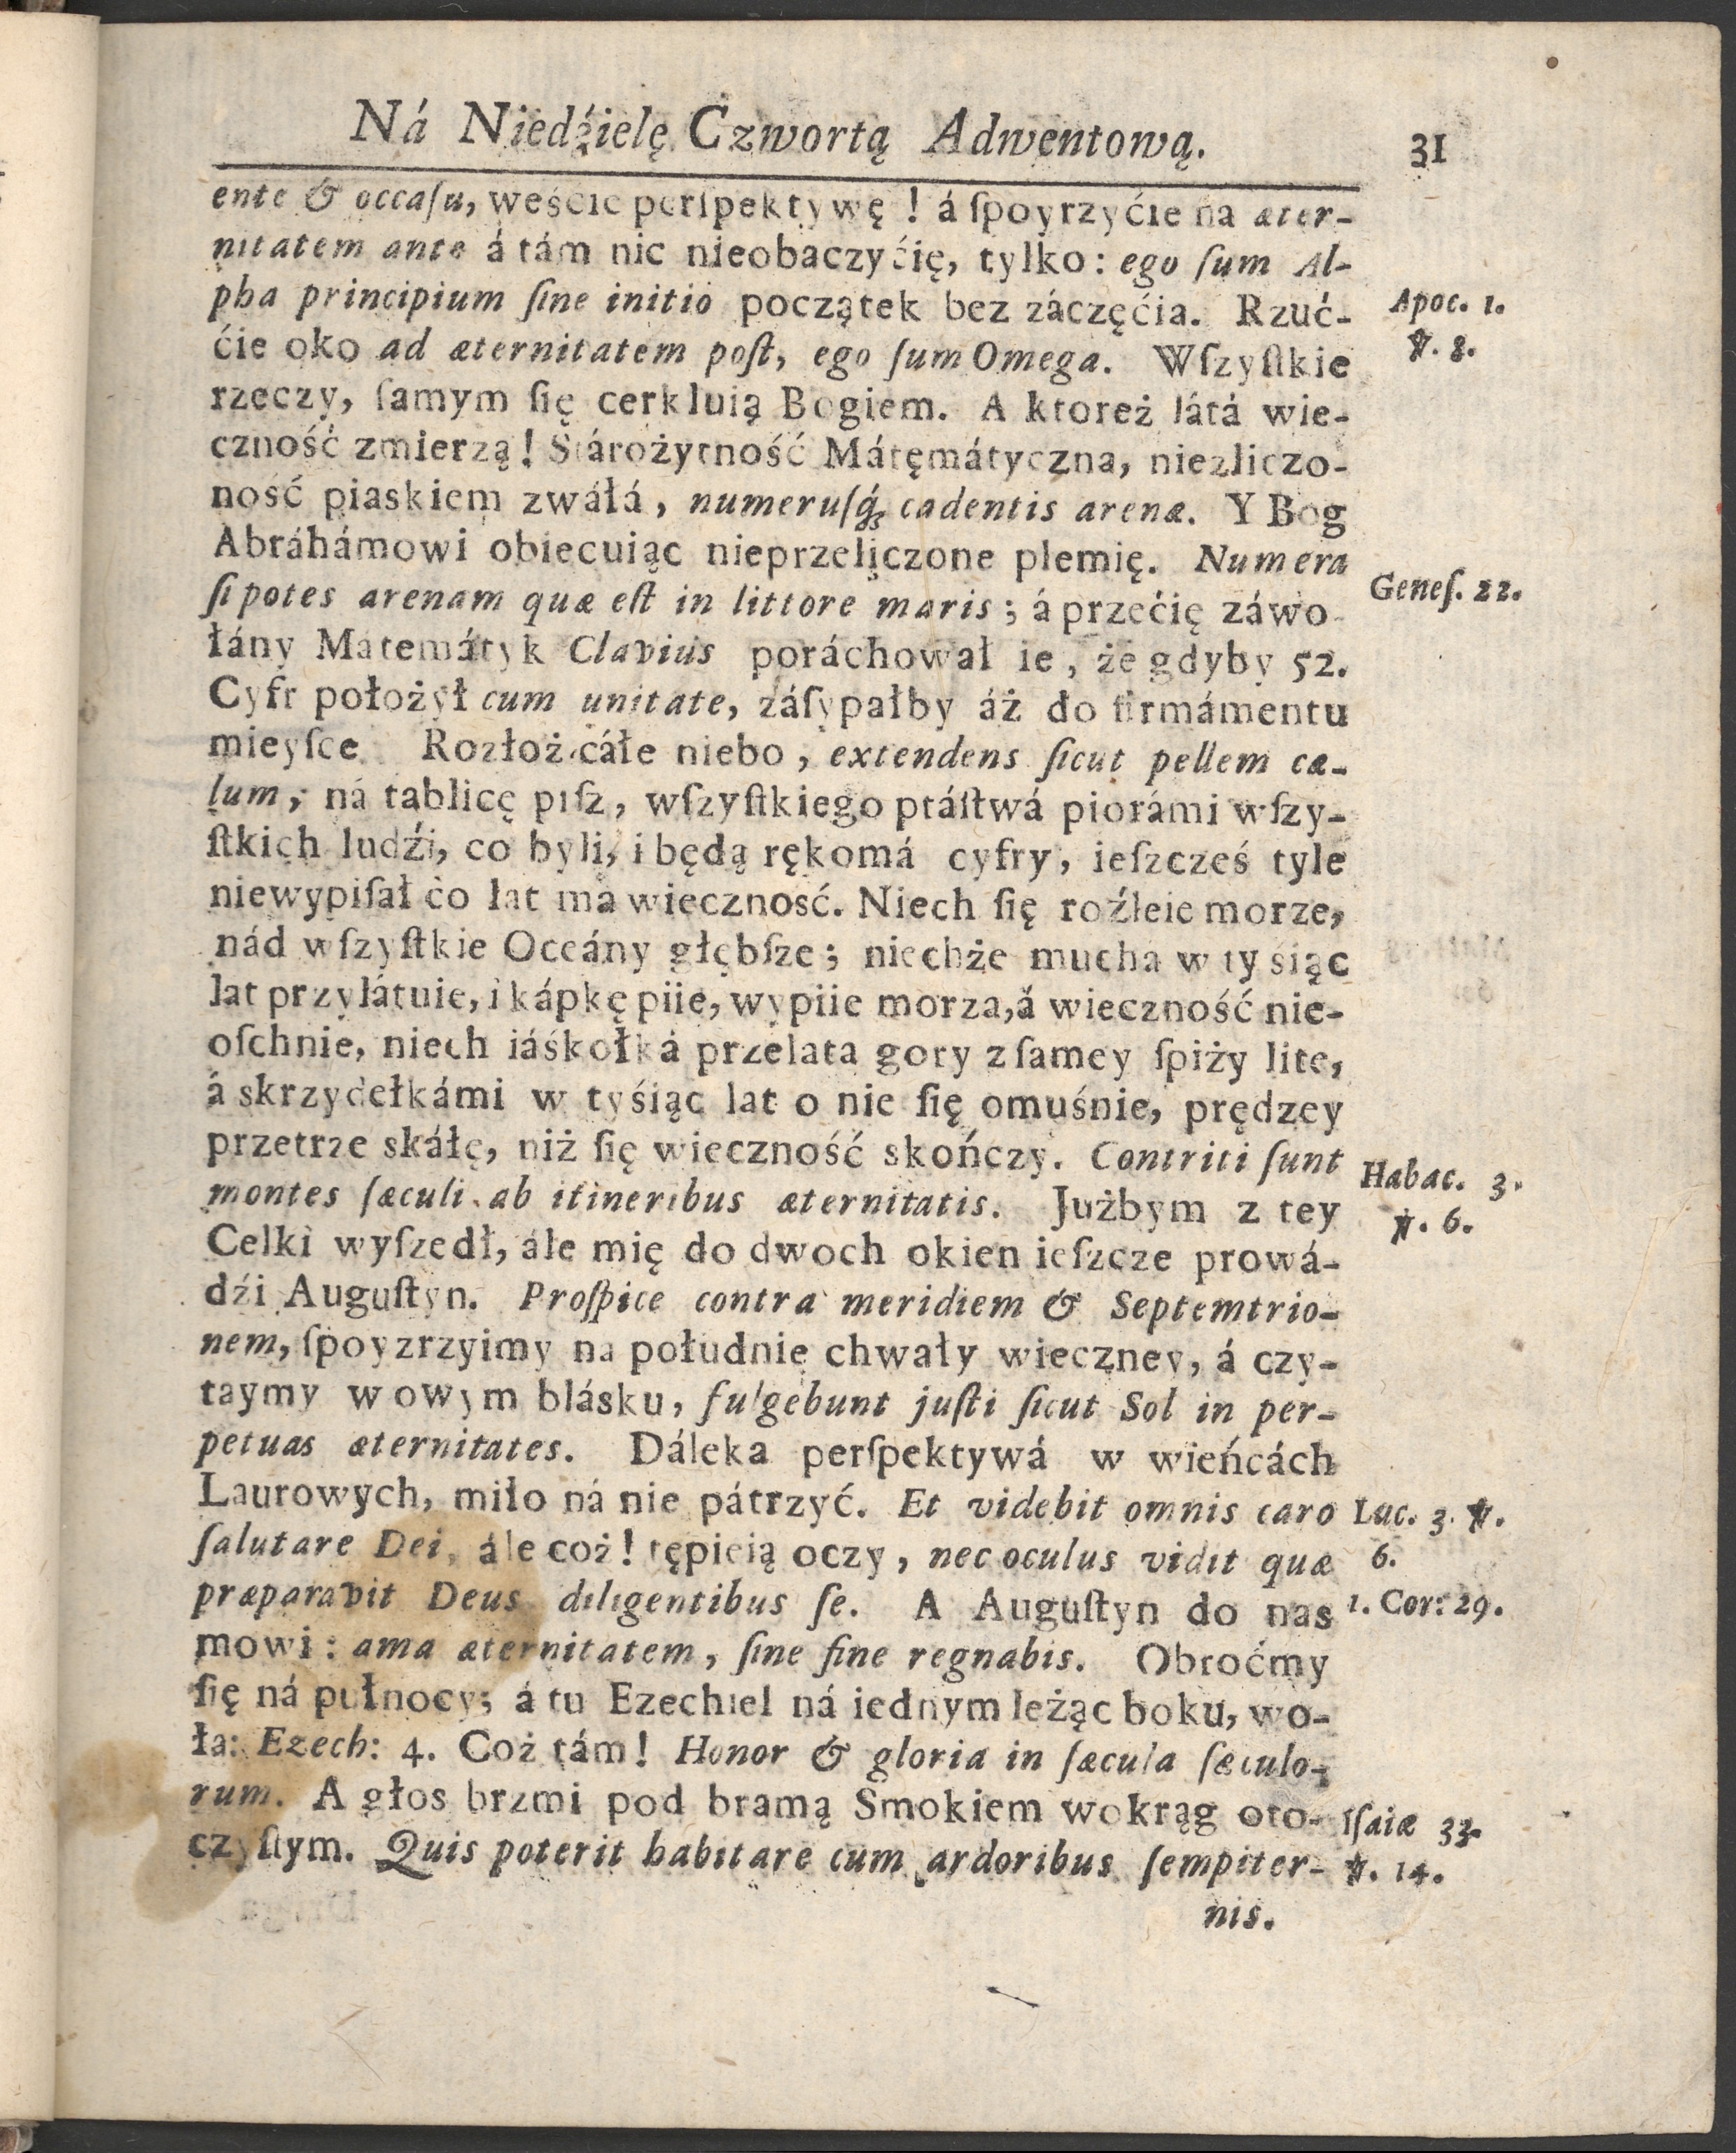 Ná Niedźielę Czwortą Adwentową. 31
ente & occaſu, weście perſpektywę ! á ſpoyrzyćie na æter-
nitatem ante á tám nic nieobaczyćię, tylko: ego ſum Al-
pha principium ſine initio początek bez záczęćia. Rzuć-
Apoc. 1.
ćie oko ad æternitatem poſt, ego ſum Omega. Wſzyſtkie
℣. 8.
rzeczy, ſamym ſię cerkluią Bogiem. A ktoreż látá wie-
czność zmierzą! Stárożytność Mátęmátyczna, niezliczo-
ność piaskiem zwáłá, numeruſq́; cadentis arenæ. Y Bog
Abráhámowi obiecuiąc nieprzeliczone plemię. Numera
Geneſ. 22.
ſi potes arenam quæ eſt in littore maris; á przećię záwo-
łány Matemátyk Clavius poráchował ie, że gdyby 52.
Cyfr położył cum unitate, záſypałby áż do firmámentu
mieyſce Rozłoż cáłe niebo, extendens ſicut pellem cæ-
lum, ná tablicę piſz, wſzyſtkiego ptáſtwá piorámi wſzy-
ſtkich ludźi, co byli, i będą rękomá cyfry, ieſzcześ tyle
niewypiſał co łat ma wiecznosć. Niech ſię roźleie morze,
nád wſzyſtkie Oceány głębſze; niechże mucha w tyśiąc
lat przylátuie, i kápkę piie, wypiie morza, á wieczność nie-
oſchnie, niech iáśkołká przelata gory z ſamey ſpiży lite,
á skrzydełkámi w tyśiąc lat o nie ſię omuśnie, prędzey
przetrze skáłę, niż ſię wieczność skończy. Contriti ſunt
Habac. 3.
montes ſæculi ab itineribus æternitatis. Jużbym z tey
℣. 6.
Celki wyſzedł, ále mię do dwoch okien ieſzcze prowá-
dźi Auguſtyn. Proſpice contra meridiem & Septemtrio-
nem, ſpoyzrzyimy na południe chwały wieczney, á czy-
taymy w owym blásku, fulgebunt juſti ſicut Sol in per-
petuas æternitates. Dáleka perſpektywá w wieńcách
Laurowych, miło ná nie pátrzyć. Et videbit omnis caro
Luc. 3. ℣.
ſalutare Dei, ále coż! tępieią oczy, nec oculus vidit quæ
6.
præparavit Deus diligentibus ſe. A Auguſtyn do nas
1. Cor: 29.
mowi: ama æternitatem, ſine fine regnabis. Obroćmy
ſię ná pułnocy; á tu Ezechiel ná iednym leżąc boku, wo-
ła: Ezech: 4. Coż tám! Honor & gloria in ſæcula ſæculo-
rum. A głos brzmi pod bramą Smokiem wokrąg oto-
Iſaiæ 33.
czyſtym. Quis poterit habitare cum ardoribus ſempiter-
℣. 14.
nis.